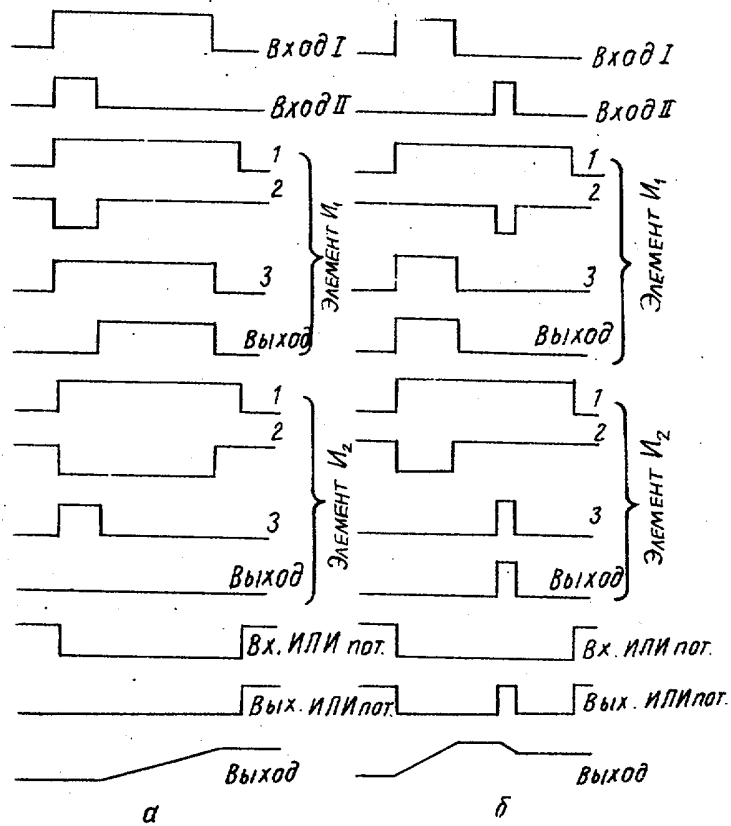 Вход I
Вход II
1
2
3
Выход
Элемент И₁
1
2
3
Выход
Элемент И₂
Вх. ИЛИ пот.
Вых. ИЛИ пот.
Выход
а
Вход I
Вход II
1
2
3
Выход
Элемент И₁
1
2
3
Выход
Элемент И₂
Вх. ИЛИ пот.
Вых. ИЛИ пот.
Выход
б